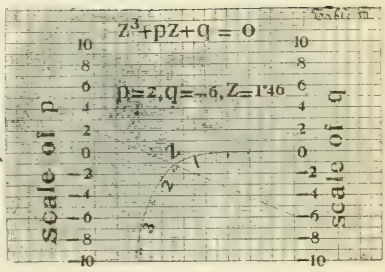 Table III
z³+pz+q = 0
p=2, q=-6, z=1.46
scale of p
10
8
6
4
2
0
-2
-4
-6
-8
-10
z
1
2
3
scale of q
10
8
6
4
2
0
-2
-4
-6
-8
-10